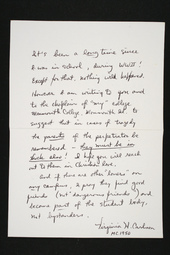 It's been a long time since
I was in school, during WWII!
Except for that, nothing with happened.
However I am writing to you and
to the chaplain of "my" college
Monmouth College, Monmouth Ill. to
suggest that in cases of tragedy
the parents of the perpetrator be
remembered - they must be in
such alone! I hope you will reach
out to them in Christian love.
And if there are other 'loners' on
any campus, I pray they find good
friends (not dangerous friends) and
become part of the student body,
not bystanders.
Virginia W.
MC 1950